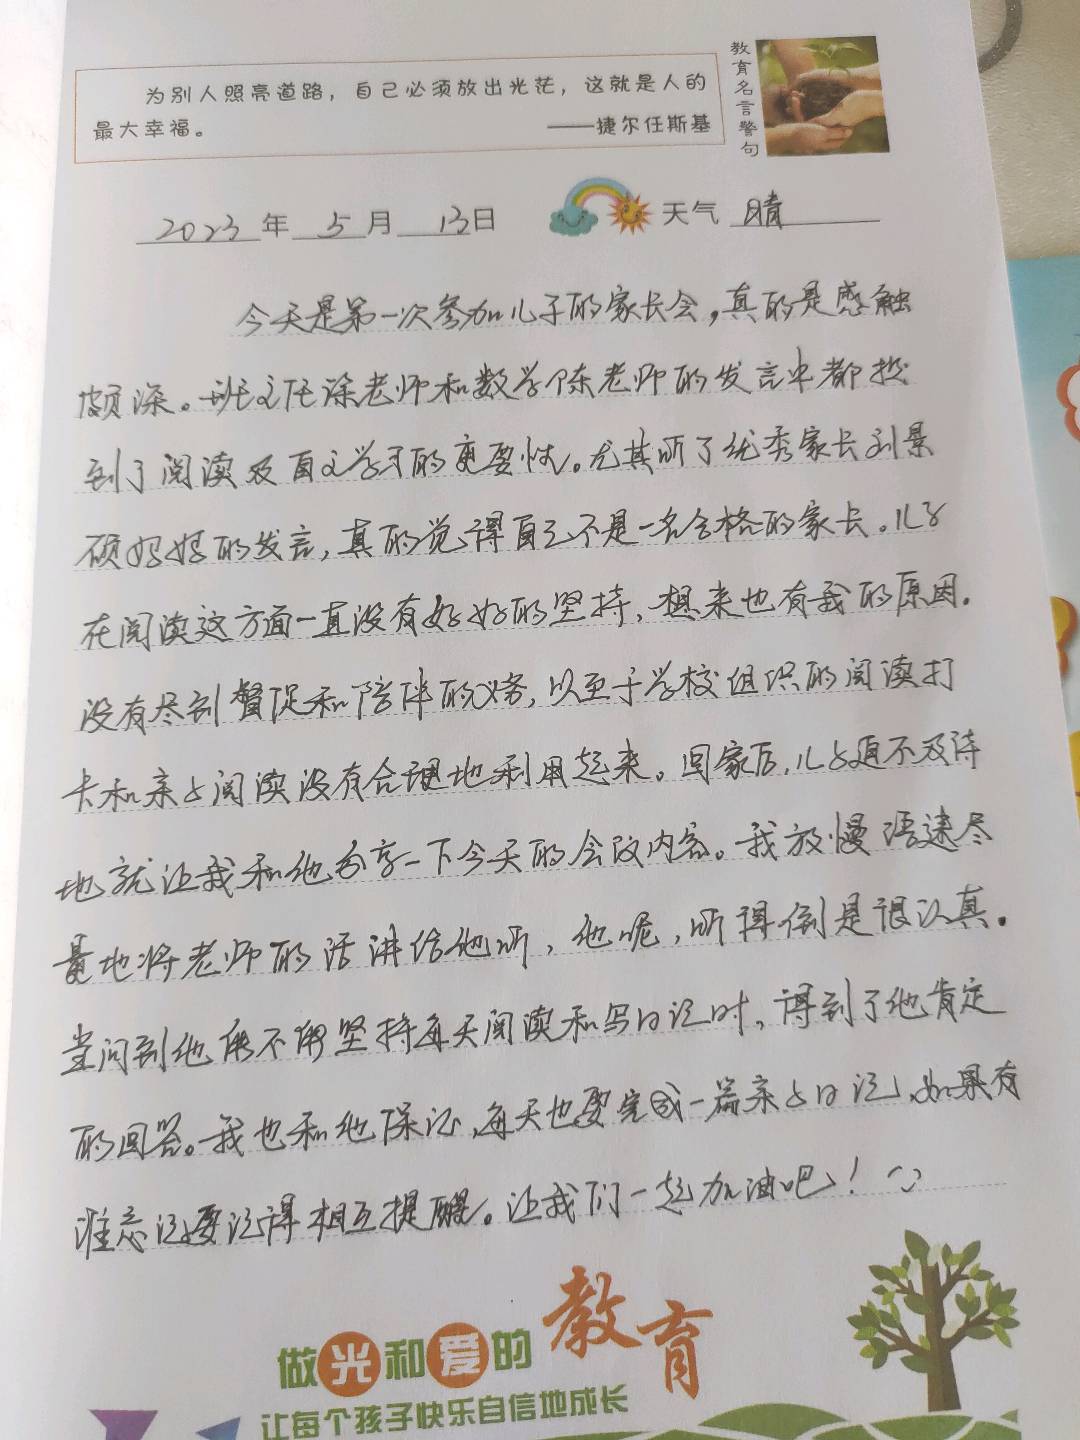 为别人照亮道路，自己必须放出光茫，这就是人的
最大幸福。
——捷尔任斯基
教育名言警句
2023年5月13日 天气 晴
今天是第一次参加儿子的家长会，真的是感触
颇深。班主任涂老师和数学陈老师的发言中都提
到了阅读及自主学习的重要性。尤其听了优秀家长刘景
硕妈妈的发言，真的觉得自己不是一名合格的家长。儿子
在阅读这方面一直没有好好的坚持，想来也有我的原因。
没有尽到督促和陪伴的义务，以至于学校组织的阅读打
卡和亲子阅读没有合理地利用起来。回家后，儿子迫不及待
地就让我和他分享一下今天的会议内容。我放慢语速尽
量地将老师的话讲给他听，他呢，听得倒是很认真。
当问到他能不能坚持每天阅读和写日记时，得到了他肯定
的回答。我也和他保证，每天也要完成一篇亲子日记，如果有
谁忘记要记得相互提醒。让我们一起加油吧！
做光和爱的教育
让每个孩子快乐自信地成长